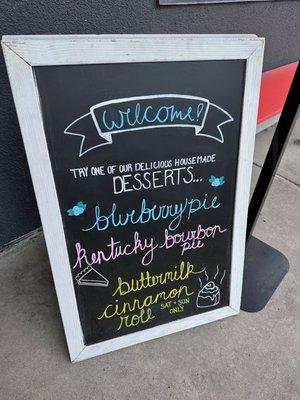 welcome!
TRY ONE OF OUR DELICIOUS HOUSEMADE
DESSERTS...
blurberry pie
kentucky bourbon
pie
buttermilk
cinnamon
roll SAT + SUN
ONLY